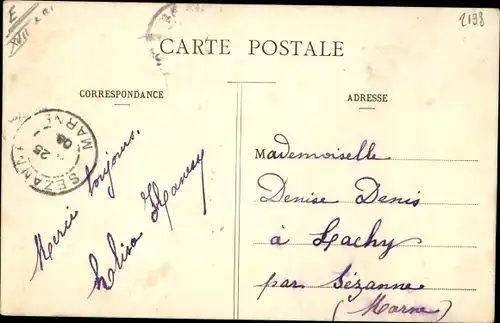 E
2198
CARTE POSTALE
CORRESPONDANCE
ADRESSE
SÉZANNE
MARNE
25
08
Merci toujours.
Elisa
Mademoiselle
Denise Denis
à Lachy
par Sézanne
(Marne)